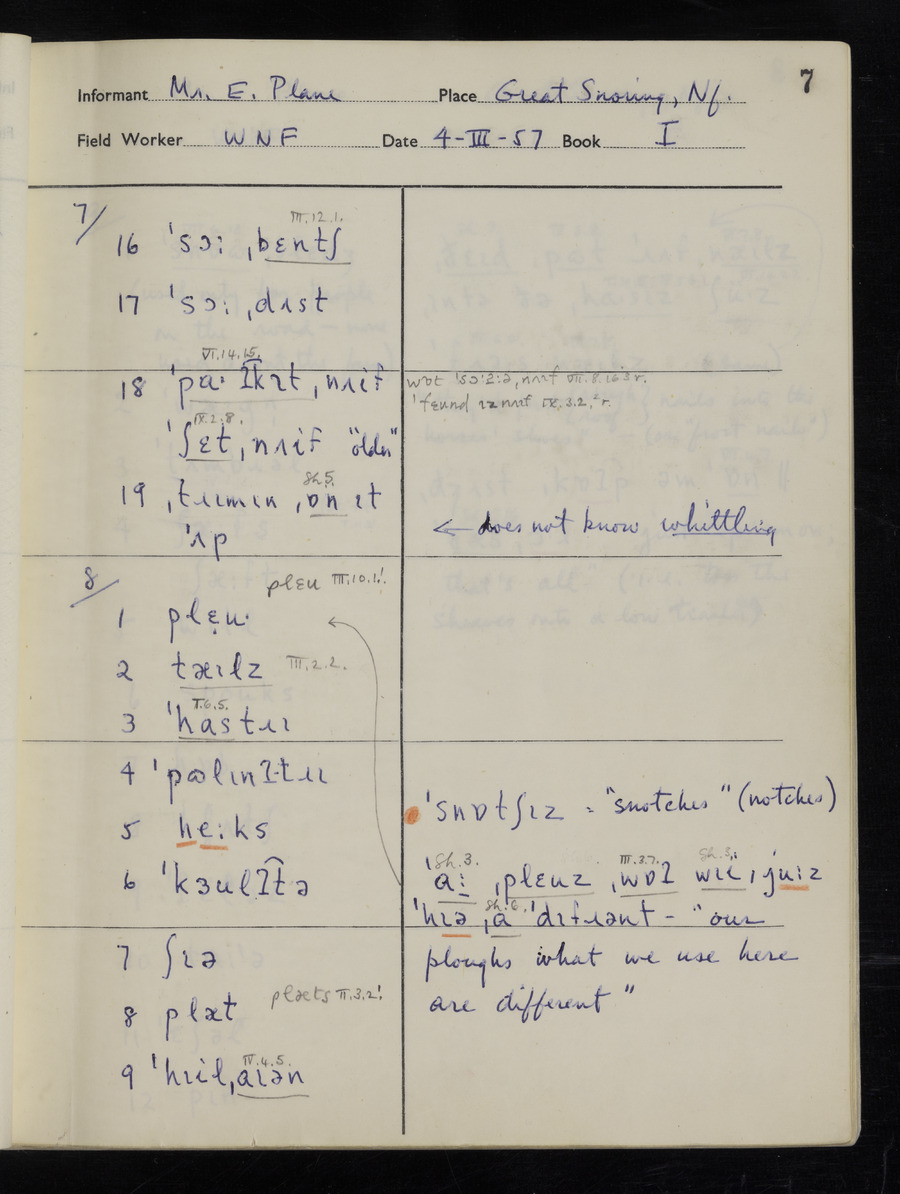 7
Informant Mr. E. Plane Place Great Snoring, Nf.
Field Worker WNF Date 4-III-57 Book I
7/
III.12.1.
16 ˈsɔː ˌbɛntʃ
17 ˈsɔː ˌdʌst
VI.14.15.
18 ˈpɑˑʔkɪt ˌnʌɪf
IX.2.8.
ˈʃɛt ˌnʌɪf "older"
Sh.5.
19 ˌtɹɪmɪn ˌɒn ɪt
ˈʌp
wɒt VII.8.16
ˈfɛund IX.3.2,² r.
← does not know whittling
8/
plɛu III.10.1.!
1 plɛ̣uˑ
2 tæɪlz III.2.2.
I.6.5.
3 ˈhastɹɪ
4
5 heːks
6
7 ʃɪə
8 plæt plæts II.3.2!
IV.4.5.
9 ˈhɪil ˌaɪən
ˈsnɒtʃɪz = "snotches" (notches)
Sh.3. III.3.7. Sh.3.
ˈaː ˌplɛuz ˌwɒʔ wiː ˌjuːz
Sh.6.
ˈhɪə ˌa ˈdɪfɹənt - "our
ploughs what we use here
are different"